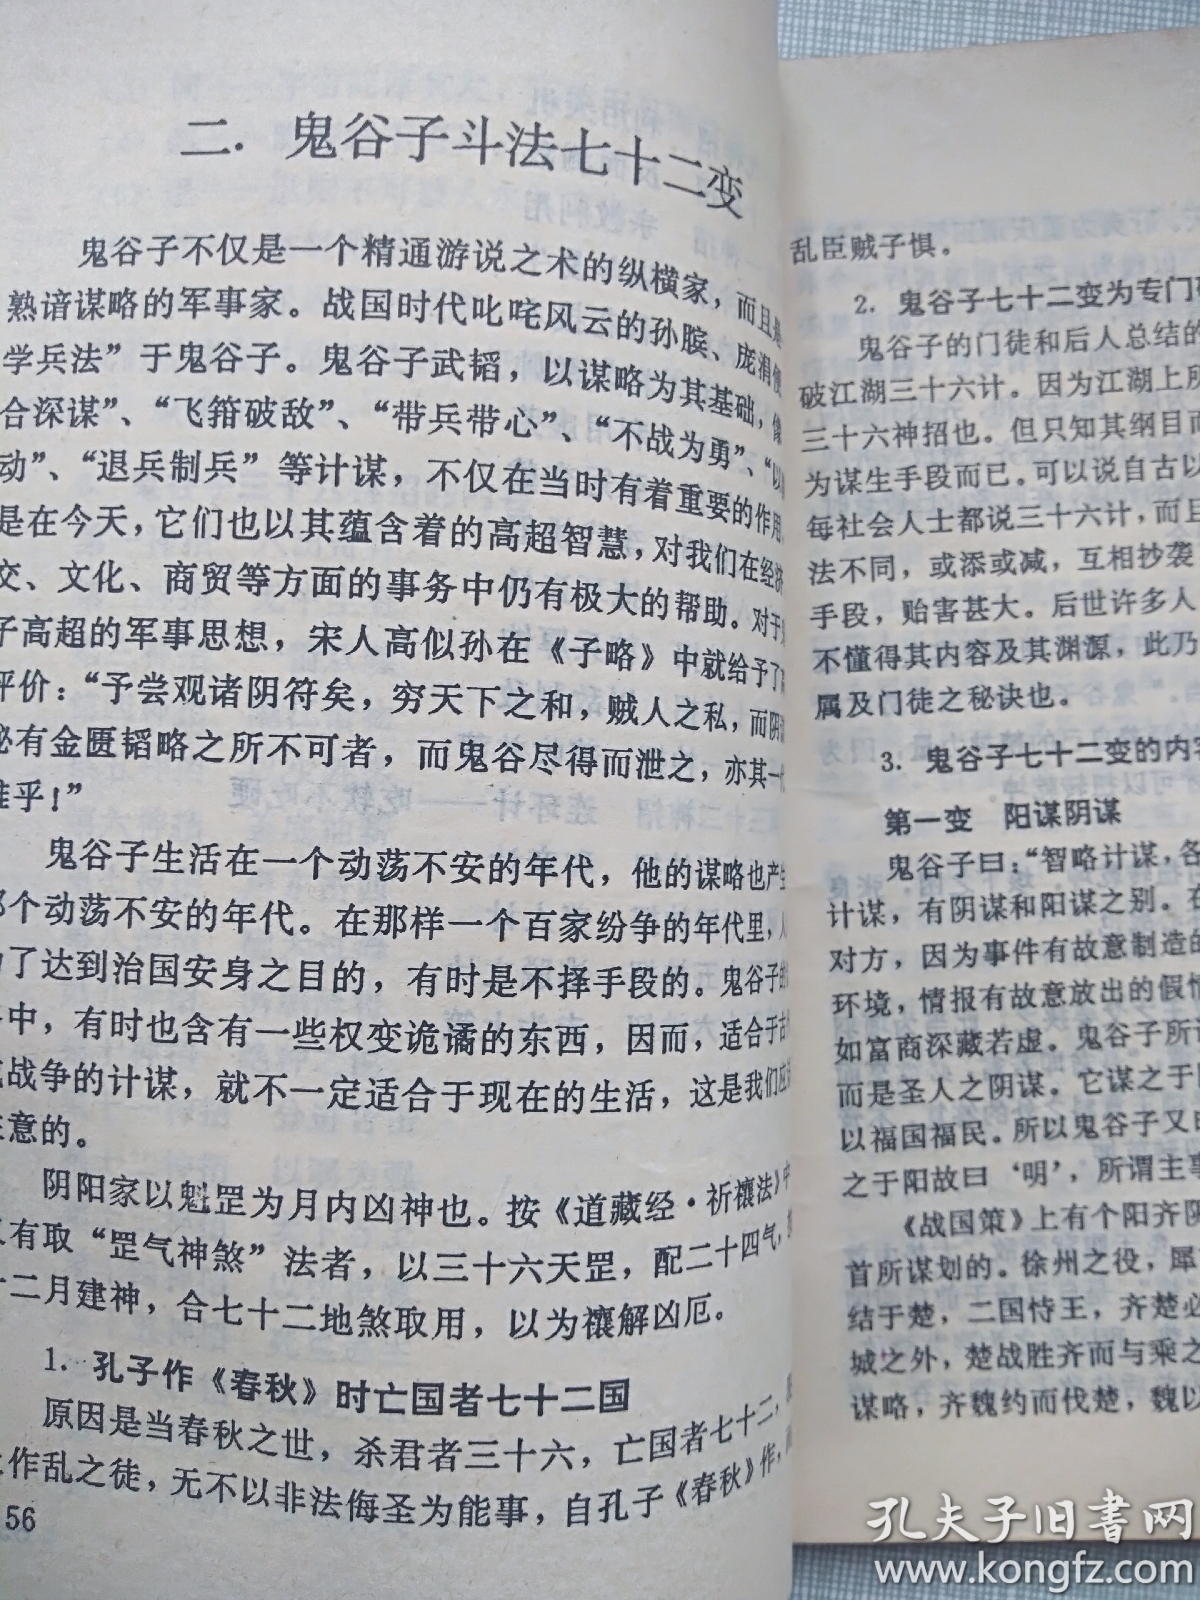 二．鬼谷子斗法七十二变
鬼谷子不仅是一个精通游说之术的纵横家，而且
熟谙谋略的军事家。战国时代叱咤风云的孙膑、庞涓
学兵法”于鬼谷子。鬼谷子武韬，以谋略为其基础，像
合深谋”、“飞箝破敌”、“带兵带心”、“不战为勇”、“以
动”、“退兵制兵”等计谋，不仅在当时有着重要的作用，
是在今天，它们也以其蕴含着的高超智慧，对我们在经济
交、文化、商贸等方面的事务中仍有极大的帮助。对于
子高超的军事思想，宋人高似孙在《子略》中就给予了
评价：“予尝观诸阴符矣，穷天下之和，贼人之私，而阴
秘有金匮韬略之所不可者，而鬼谷尽得而泄之，亦其一
雄乎！”
鬼谷子生活在一个动荡不安的年代，他的谋略也产生
那个动荡不安的年代。在那样一个百家纷争的年代里，人
了达到治国安身之目的，有时是不择手段的。鬼谷子的
中，有时也含有一些权变诡谲的东西，因而，适合于古
战争的计谋，就不一定适合于现在的生活，这是我们应
意的。
阴阳家以魁罡为月内凶神也。按《道藏经·祈禳法》中
有取“罡气神煞”法者，以三十六天罡，配二十四气，
十二月建神，合七十二地煞取用，以为禳解凶厄。
1．孔子作《春秋》时亡国者七十二国
原因是当春秋之世，杀君者三十六，亡国者七十二，
作乱之徒，无不以非法侮圣为能事，自孔子《春秋》作，
56
乱臣贼子惧。
2．鬼谷子七十二变为专门破
鬼谷子的门徒和后人总结的
破江湖三十六计。因为江湖上所
三十六神招也。但只知其纲目而
为谋生手段而已。可以说自古以
每社会人士都说三十六计，而且
法不同，或添或减，互相抄袭
手段，贻害甚大。后世许多人
不懂得其内容及其渊源，此乃
属及门徒之秘诀也。
3．鬼谷子七十二变的内容
第一变 阳谋阴谋
鬼谷子曰：“智略计谋，各
计谋，有阴谋和阳谋之别。在
对方，因为事件有故意制造的
环境，情报有故意放出的假情
如富商深藏若虚。鬼谷子所
而是圣人之阴谋。它谋之于阴
以福国福民。所以鬼谷子又曰
之于阳故曰‘明’，所谓主事
《战国策》上有个阳齐阴
首所谋划的。徐州之役，犀
结于楚，二国恃王，齐楚必
城之外，楚战胜齐而与乘之
谋略，齐魏约而伐楚，魏以
孔夫子旧书网
www.kongfz.com